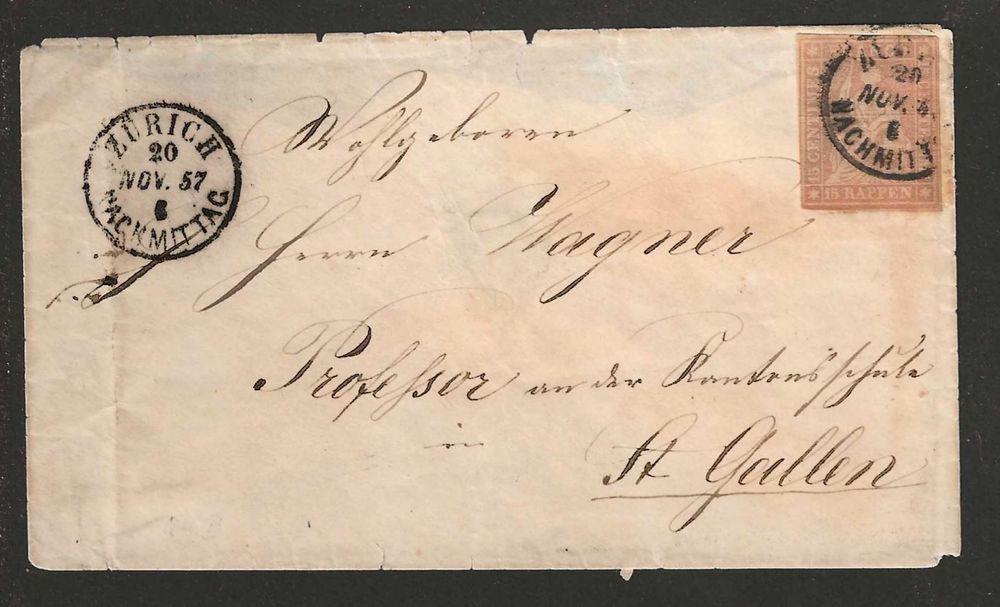 ZÜRICH
20
NOV. 57
6
NACHMITTAG
20
NOV. 5
6
NACHMITT
15 RAPPEN
Wohlgeboren
Herrn Wagner
Professor an der Kantonsschule
in
St Gallen